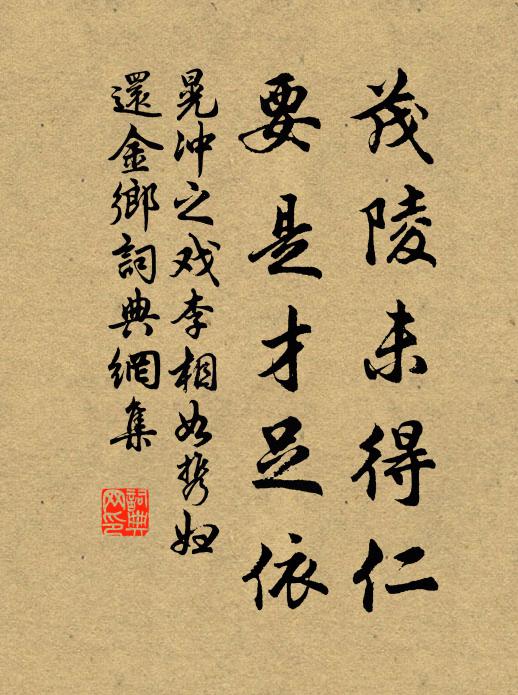 茂陵未得仁
要是才足依
晁冲之戏李相如携妇
還金鄉詞典網集
詞典网印